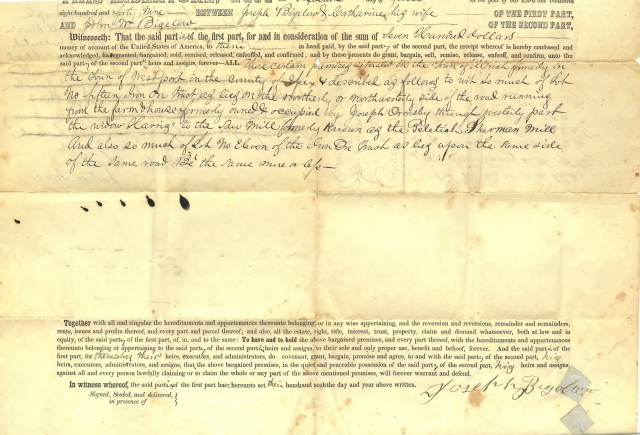 eight hundred and sixty Nine BETWEEN Joseph Bigelow & Catharine his wife
OF THE FIRST PART,
AND John W Bigelow
OF THE SECOND PART,
Witnesseth: That the said parties of the first part, for and in consideration of the sum of Seven Hundred dollars
money of account of the United States of America, to them in hand paid, by the said party of the second part, the receipt whereof is hereby confessed and
acknowledged, have granted, bargained, sold, remised, released, enfeoffed, and confirmed; and by these presents do grant, bargain, sell, remise, release, enfeoff, and confirm, unto the
said party of the second part his heirs and assigns, forever—ALL those certain premises situated in the Town of
the Town of Westport in the county of Essex & described as follows to wit so much of Lot
No fifteen Iron Ore tract as lies on the Northerly or Northwesterly side of the road running
from the farm & house formerly owned & occupied by Joseph Ormsby through westerly past
the widow Harris to the Saw Mill formerly Known as the Sherman Mill
And also so much of Lot No Eleven of the Iron Ore Tract as lies upon the same side
of the same road Be the same more or less—
Together with all and singular the hereditaments and appurtenances thereunto belonging, or in any wise appertaining, and the reversion and reversions, remainder and remainders,
rents, issues and profits thereof, and every part and parcel thereof; and also, all the estate, right, title, interest, trust, property, claim and demand whatsoever, both at law and in
equity, of the said party of the first part, of, in, and to the same: To have and to hold the above bargained premises, and every part thereof, with the hereditaments and appurtenances
thereunto belonging or appertaining to the said party of the second part his heirs and assigns, to their sole and only proper use, benefit and behoof, forever. And the said parties of the
first part, for themselves their heirs, executors, and administrators, do covenant, grant, bargain, promise and agree, to and with the said party of the second part, his
heirs, executors, administrators, and assigns, that the above bargained premises, in the quiet and peaceable possession of the said party of the second part, his heirs and assigns,
against all and every person lawfully claiming or to claim the whole or any part of the above mentioned premises, will forever warrant and defend.
In witness whereof, the said parties of the first part have hereunto set their hand and seals the day and year above written.
Signed, Sealed, and delivered,
in presence of
Joseph Bigelow